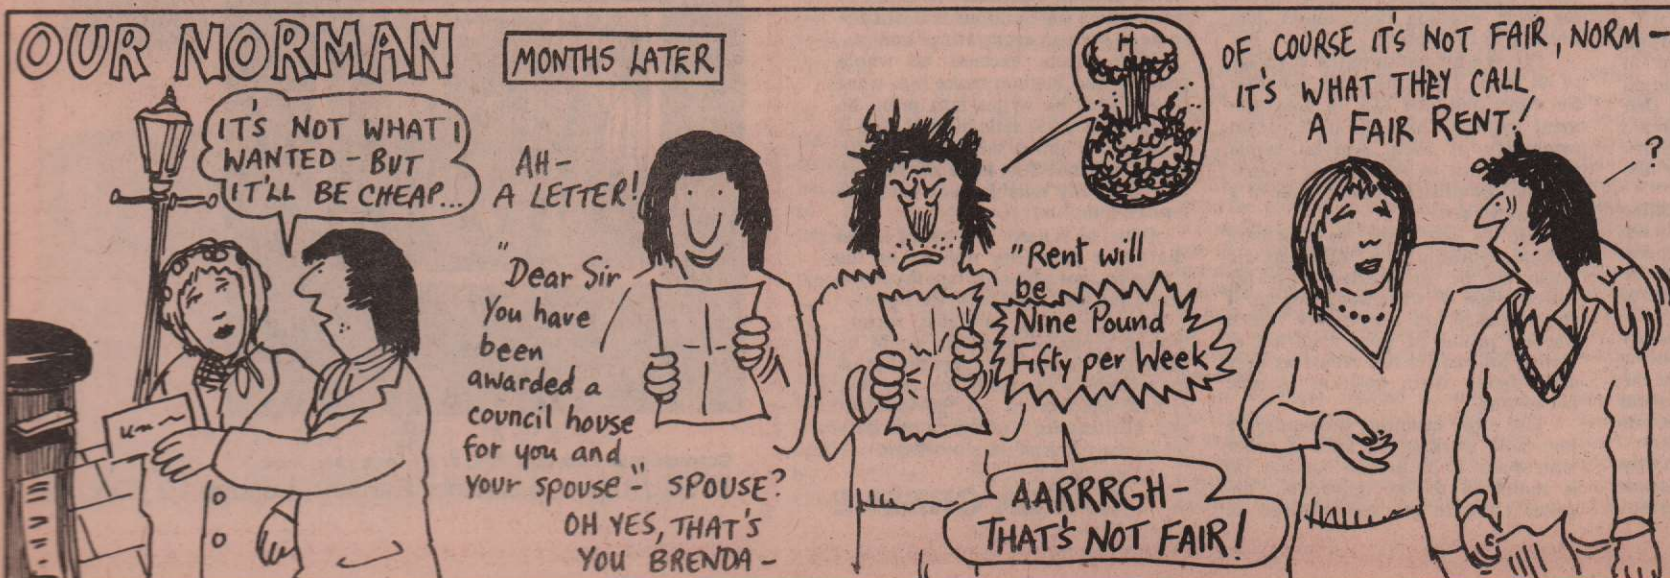 OUR NORMAN
IT'S NOT WHAT I
WANTED - BUT
IT'LL BE CHEAP...
MONTHS LATER
AH -
A LETTER!
"Dear Sir
You have
been
awarded a
council house
for you and
your spouse -" SPOUSE?
OH YES, THAT'S
YOU BRENDA -
H
"Rent will
be
Nine Pound
Fifty per Week
AARRRGH -
THAT'S NOT FAIR!
OF COURSE IT'S NOT FAIR, NORM -
IT'S WHAT THEY CALL
A FAIR RENT!
?